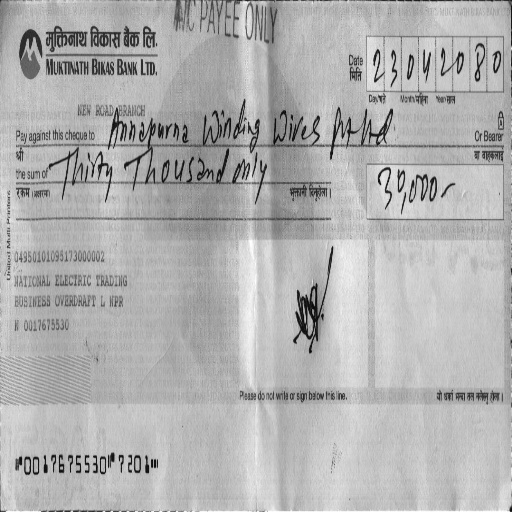 A/C PAYEE ONLY
मुक्तिनाथ विकास बैंक लि.
MUKTINATH BIKAS BANK LTD.
Date
मिति
23042080
Day/गते Month/महिना Year/साल
NEW ROAD BRANCH
Pay against this cheque to Annapurna Winding Wires Pvt Ltd. Or Bearer
श्री वा वाहकलाई
the sum of Thirty Thousand only
रकम (अक्षरमा) भुक्तानी दिनुहोला ।
30,000-
United Multi Printers
04950101095173000002
NATIONAL ELECTRIC TRADING
BUSINESS OVERDRAFT L NPR
N 0017675530
Please do not write or sign below this line.
⑈0017675530⑈7201⑈